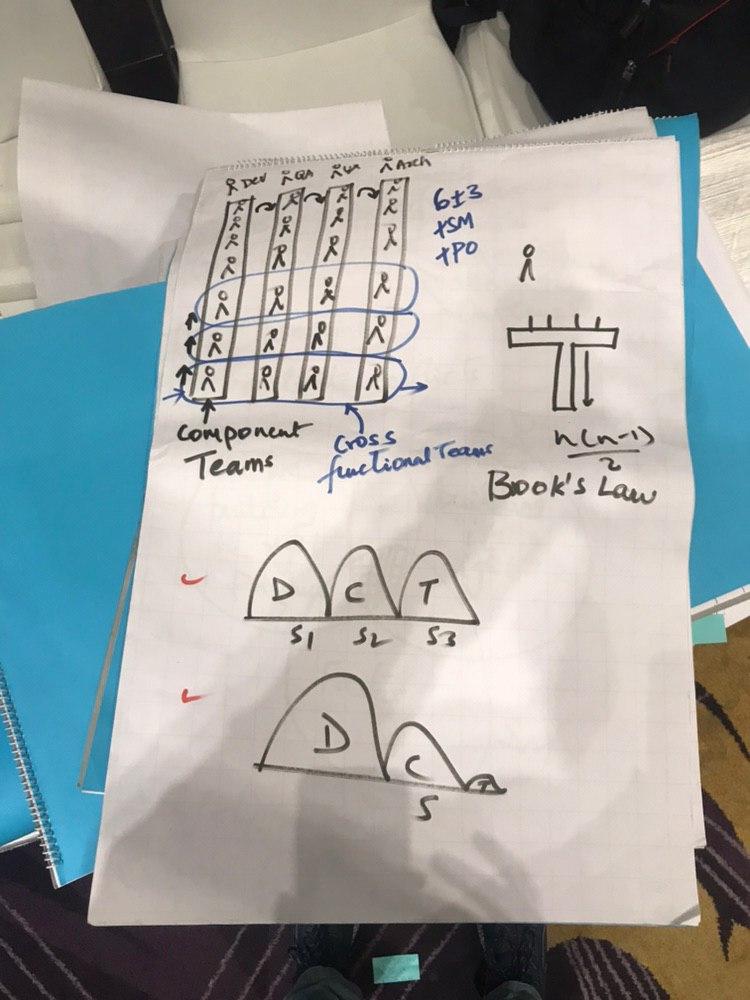 Dev QA UX Arch
6±3
+SM
+PO
Component
Teams
Cross
functional Teams
n(n-1)
2
Brook's Law
D C T
S1 S2 S3
D C T
S